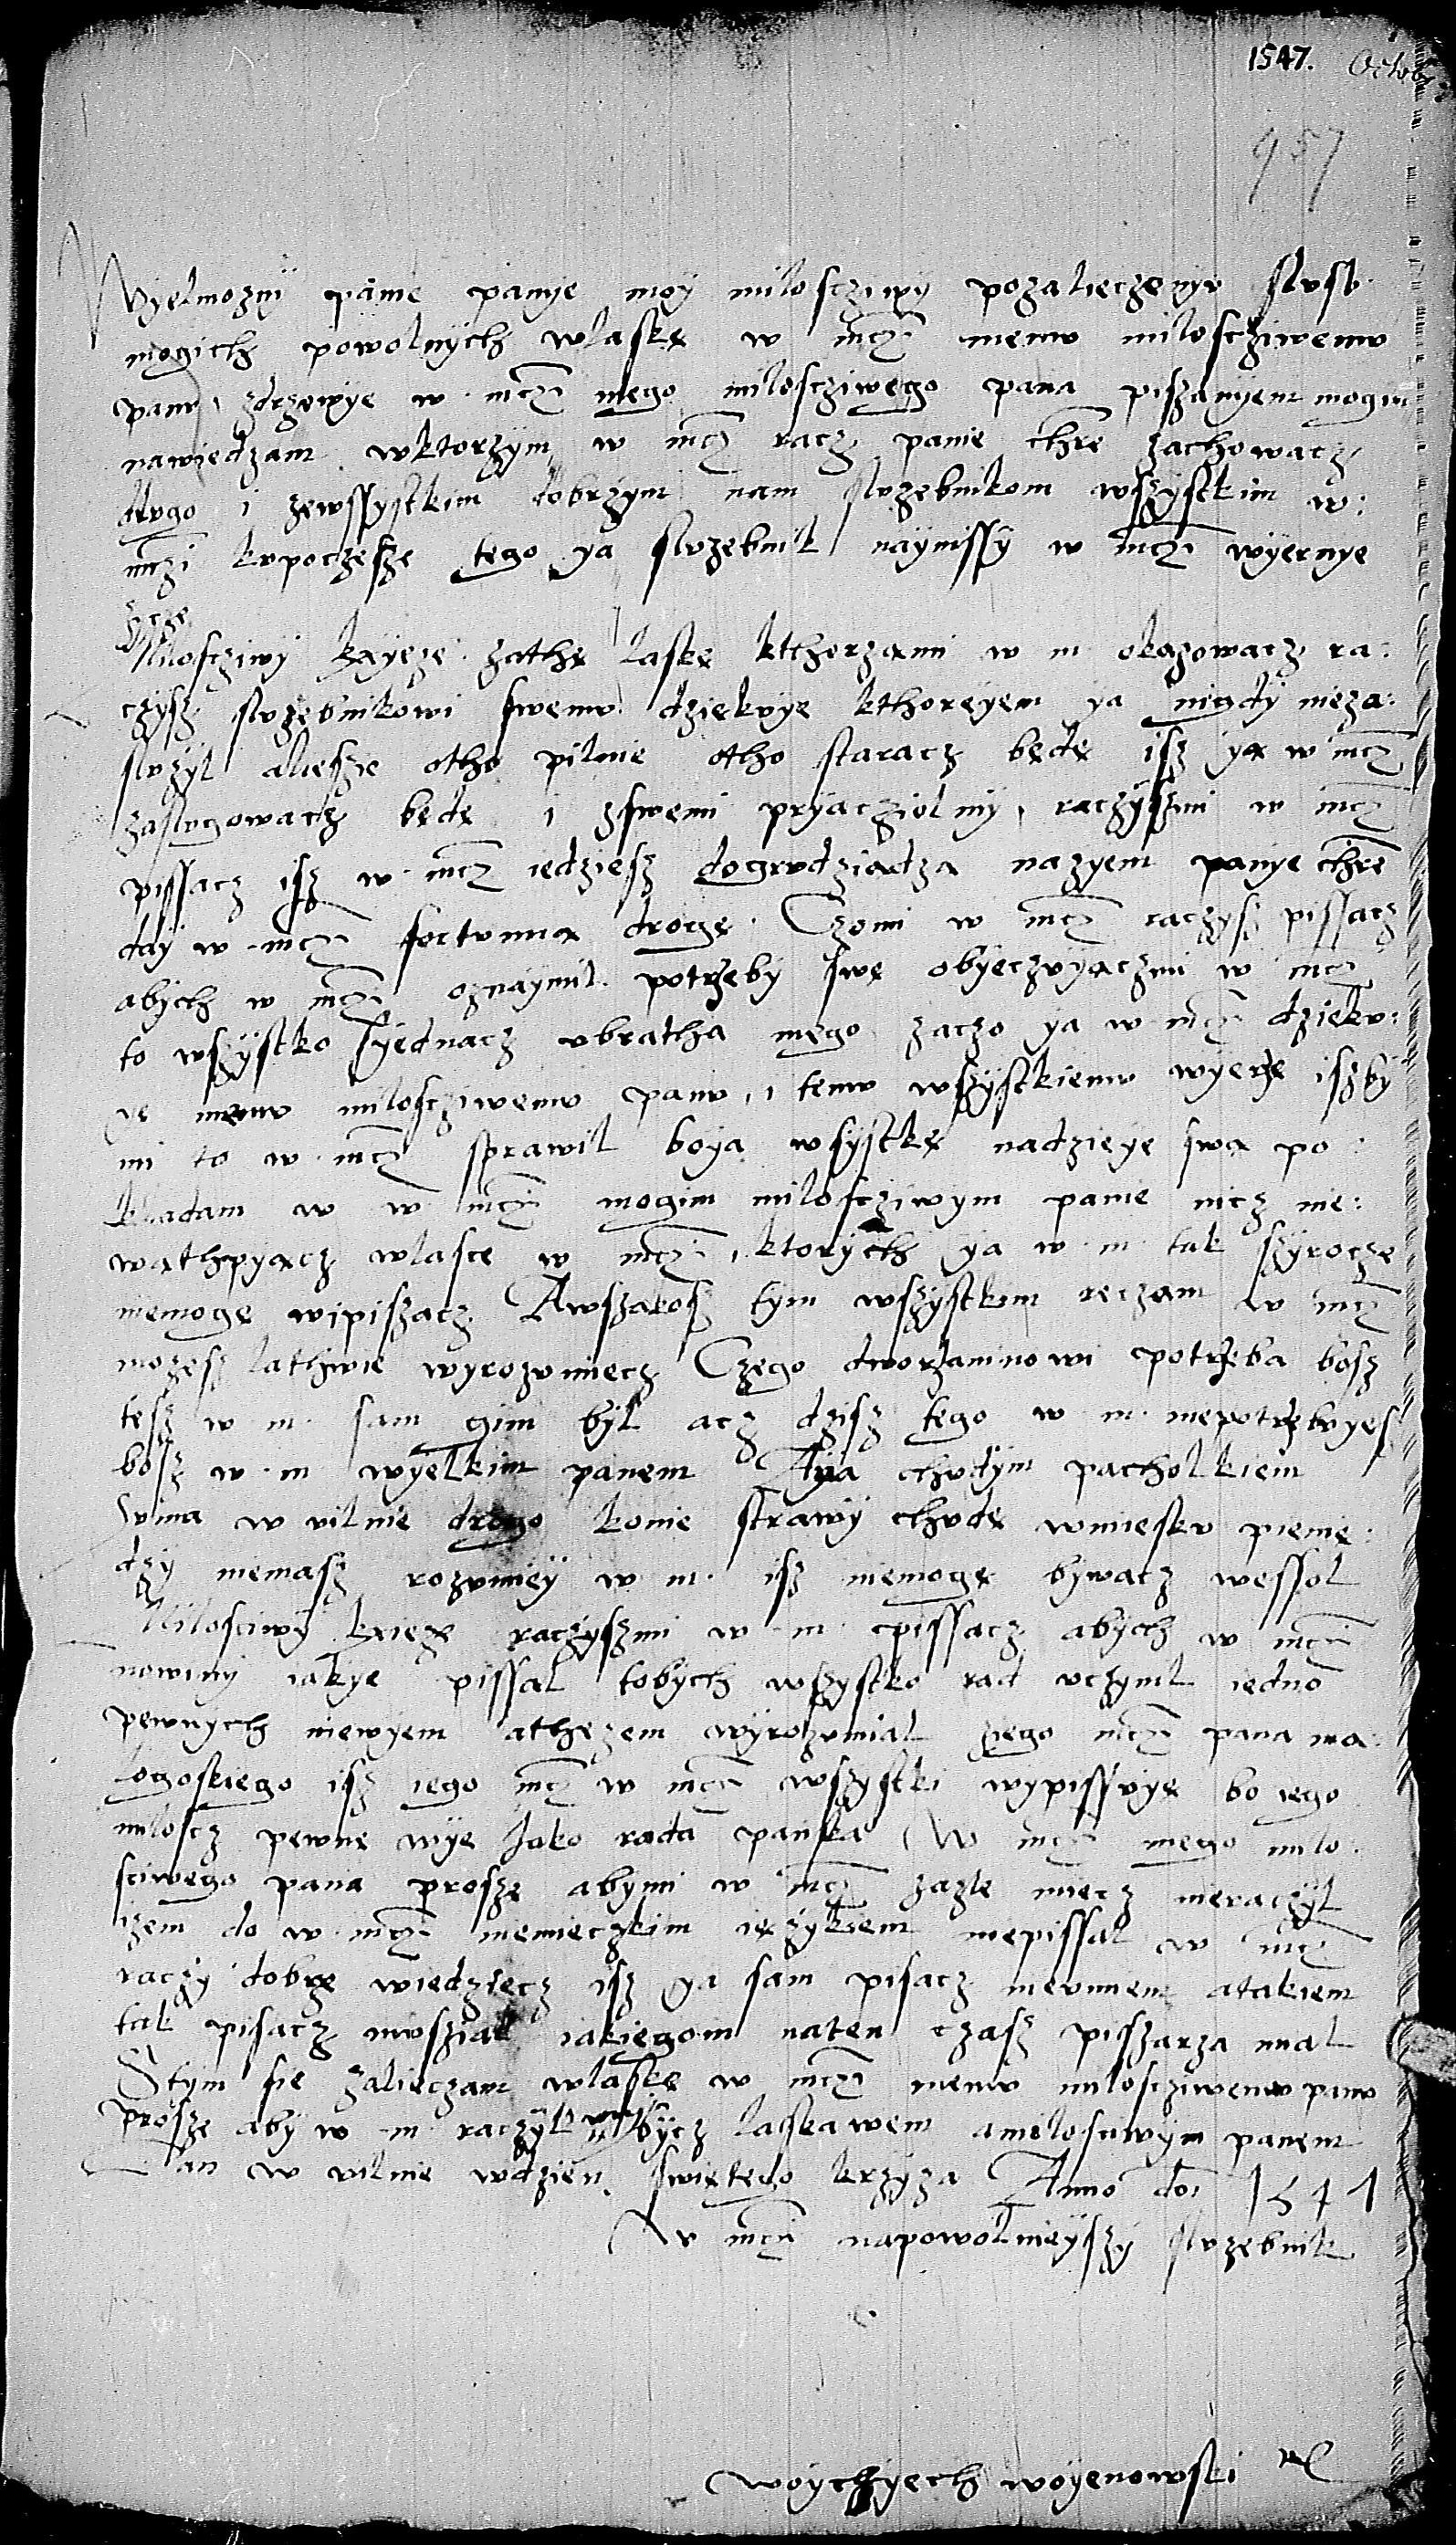 1547. Octobr
957
Wyelmozny panie panye moy milosczywy pozalieczenyv slvsb
mogich powolnych wlaskę w mczi memv miloscziwemv
panv, zdrzowye w mczi mego milosczywego pana piszanyem mogim
nawiedzam wktorzym w mcz racz panie chre zachowacz
dlvgo i zewssystkim dobrzym nam slvzebnikom wszystkim w:
mczi kvpoczesze tego ya slvzebnik naynissy w mczi wyernye
zyczę
Milosczywy kxyeze zathę laskę kthorzami w m okazowacz ra:
czysz slvzebnikowi swemv dziekvye kthoreyem ya nigdy nieza:
slvzyl aliesze otho pilnie otho staracz będę isz yą w mcz
zaslvgowacz będę i zswemi pryacziolmy, raczyszmi w mcz
pissacz isz w mcz iedziesz dogrvdziądzą nazyem panye chre
day w mczi fortvnną drogę. Czomi w mcz raczysz pissacz
abych w mczi oznaymil potrzeby swę obyeczvyączmi w mcz
to wszystko syednacz vbratha mego zaczo ya w mczi dziekv:
ye memv milosczywemv panv, i temv wszystkiemv wyerzę iszby
mi to w mcz sprawil boya wsystkę nadzieye swą po
kladam w w mczi mogim milosczywym panie nicz nie:
wathpyącz wlasce w mczi, ktorych ya w m tak szyrocze
niemogę wipiszacz Awszakosz tym wszystkim reczam w mcz
mozesz lathwie wyrozvmiecz Czego dworzaninowi potrzeba bosz
tesz w m sam gim byl acz dzisz tego w m niepotrzebvyes
bosz w m wyelkim panem Aya chvdym pacholkiem
zvina w vilnie drogo konie strawy chvdę wmieskv pienię
dzy niemasz rozvmiey w m isz niemogę bywacz wessol
Milosciwy kxięzę raczyszmi w m pissacz abych w mczi
nowiny iakye pissal tobych wszystko rad vczynil iedno
pewnych niewyem athezem wyrozvmial zego mczi pana ma
logoskiego isz iego mcz w mczi wszystki wypissvye bo iego
miloscz pewnę wye Jako rada panska W mczi mego milo
sciwego pana proszę abymi w mcz zazle miecz nieraczyl
izem do w mczi niemieczkim ięzykiem niepissal w mcz
raczy dobrze wiedziecz isz ya sam pisacz nievmiem atakiem
tak pisacz mvszial iakiegom naten czasz piszarza mial
Stym sie zalieczam wlaskę w mczi memv milosczywemv panv
proszę aby w m raczyl mym bycz laskawem amilosciwym panem
Dan w vilnie wdzien swiętego krzyza Anno doi 1547
W mczi napowolnieyszy slvzebnik
woychyech woyenowski